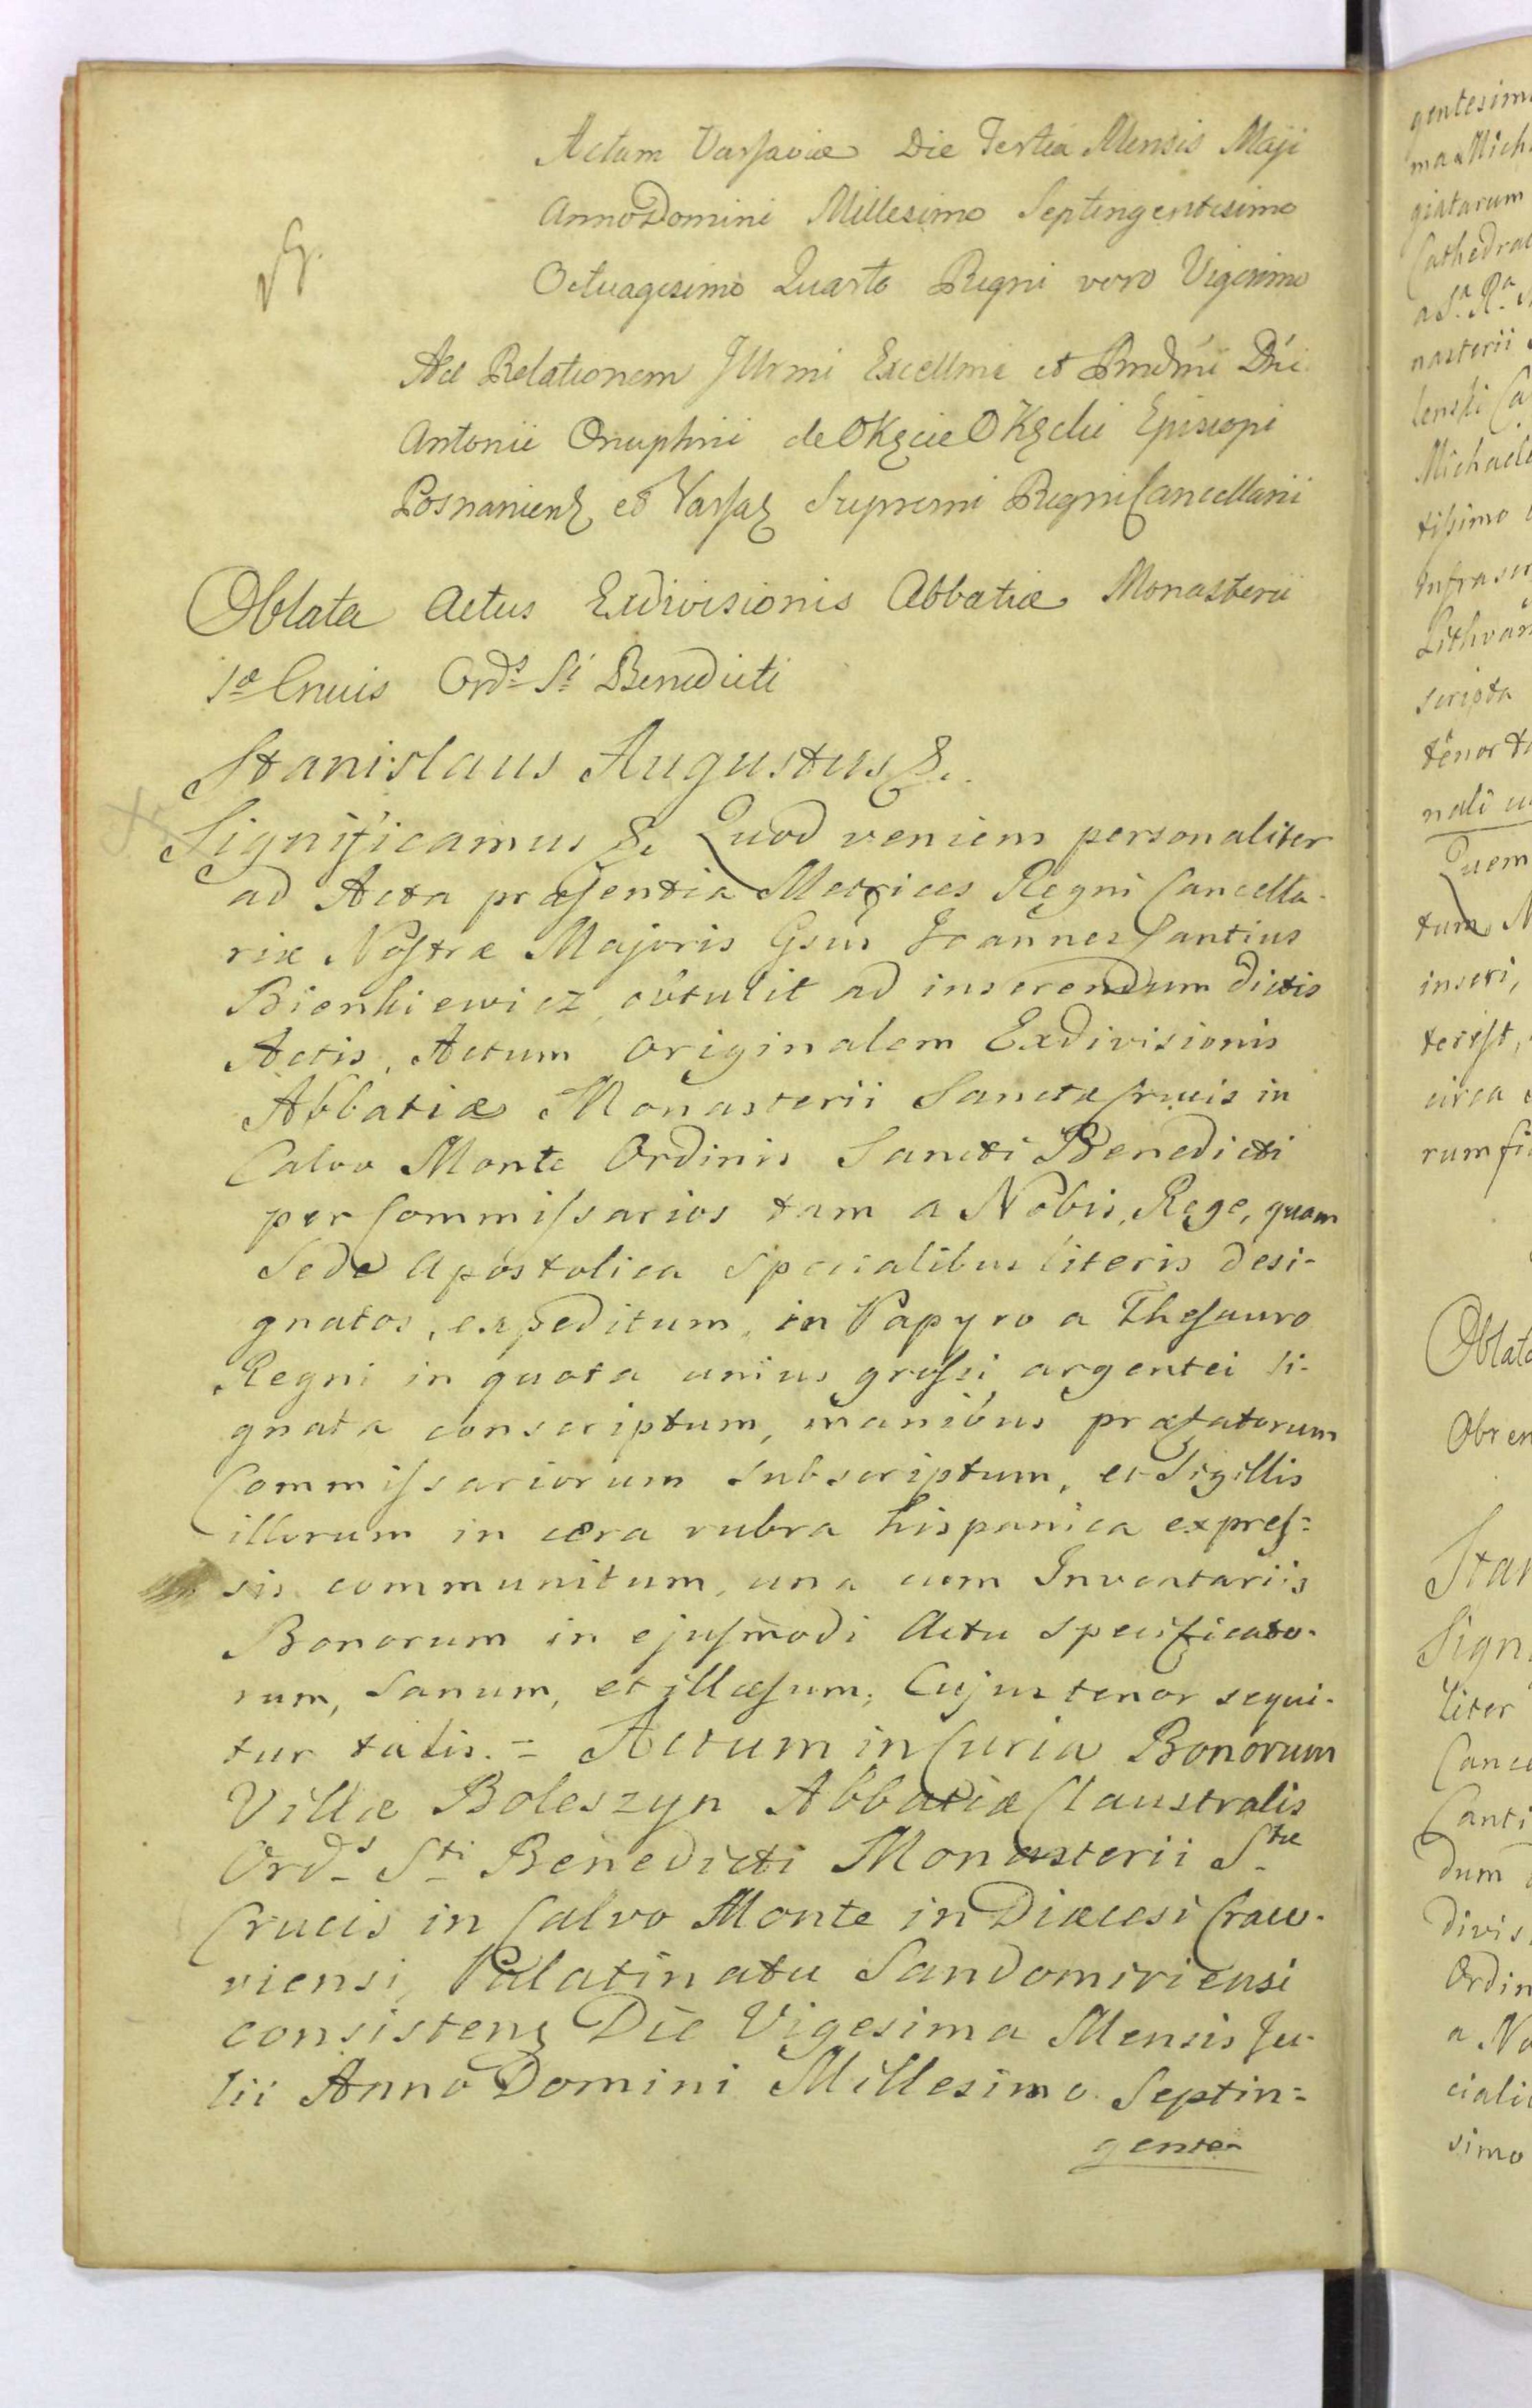 Actum Varsaviæ Die Tertia Mensis Maji
Anno Domini Millesimo Septingentesimo
Octuagesimo Quarto Regni vero Vigesimo
Ad Relationem Jllrmi Excellmi et Rndmi Dni
Antonii Onuphrii de Okęcie Okęcki Episcopi
Posnaniens et Varsas Supremi Regni Cancellarii
Oblata Actus Exdivisionis Abbatiæ Monasterii
Sæ Crucis Ords Sti Benedicti
Stanislaus Augustus &.
Significamus &. Quod veniens personaliter
ad Acta præsentia Metrices Regni Cancella-
riæ Nostræ Majoris Gsus Joannes Cantius
Bienkiewicz, obtulit ad inserendum dictis
Actis, Actum originalem Exdivisionis
Abbatiæ Monasterii Sanctæ Crucis in
Calvo Monte Ordinis Sancti Benedicti
per Commissarios tam a Nobis, Rege, quam
Sede Apostolica specialibus literis desi-
gnatos, expeditum, in Papyro a Thesauro
Regni in quota unius grossi argentei si-
gnata conscriptum, manibus præfatorum
Commissariorum subscriptum, et Sigillis
illorum in cæra rubra hispanica expres=
sis communitum, una cum Inventariis
Bonorum in ejusmodi Actu specificato-
rum, Sanum, et illæsum; Cujus tenor sequi-
tur talis. = Actum in Curia Bonorum
Villæ Boleszyn Abbatiæ Claustralis
Ords Sti Benedicti Monasterii Stæ
Crucis in Calvo Monte in Diæcesi Craco-
viensi, Palatinatu Sandomiriensi
consistens Die Vigesima Mensis Ju-
lii Anno Domini Millesimo Septin=
gente-
gentesim
giatarum
Cathedral
nasterii
Michaele
tissimo
scripta
tenor
nali
Quem
tum
inseri,
circa
Oblata
Stan
Sign
liter
Cance
Canti
dum
divis
Ordin
a No
simo